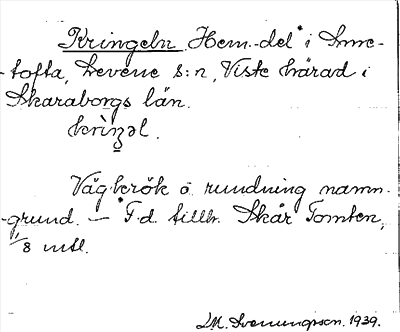 Kringeln Hem.-del i Inne-
-tofta, Levene s:n, Viste härad i
Skaraborgs län.
Vägkrök o. rundning namn-
-grund. — F.d. tillh. Skår Tomten,
1/8 mtl.
M. Svenungsson. 1939.